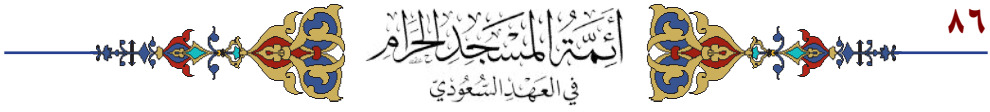 ٨٦
أئمة المسجد الحرام
في العهد السعودي